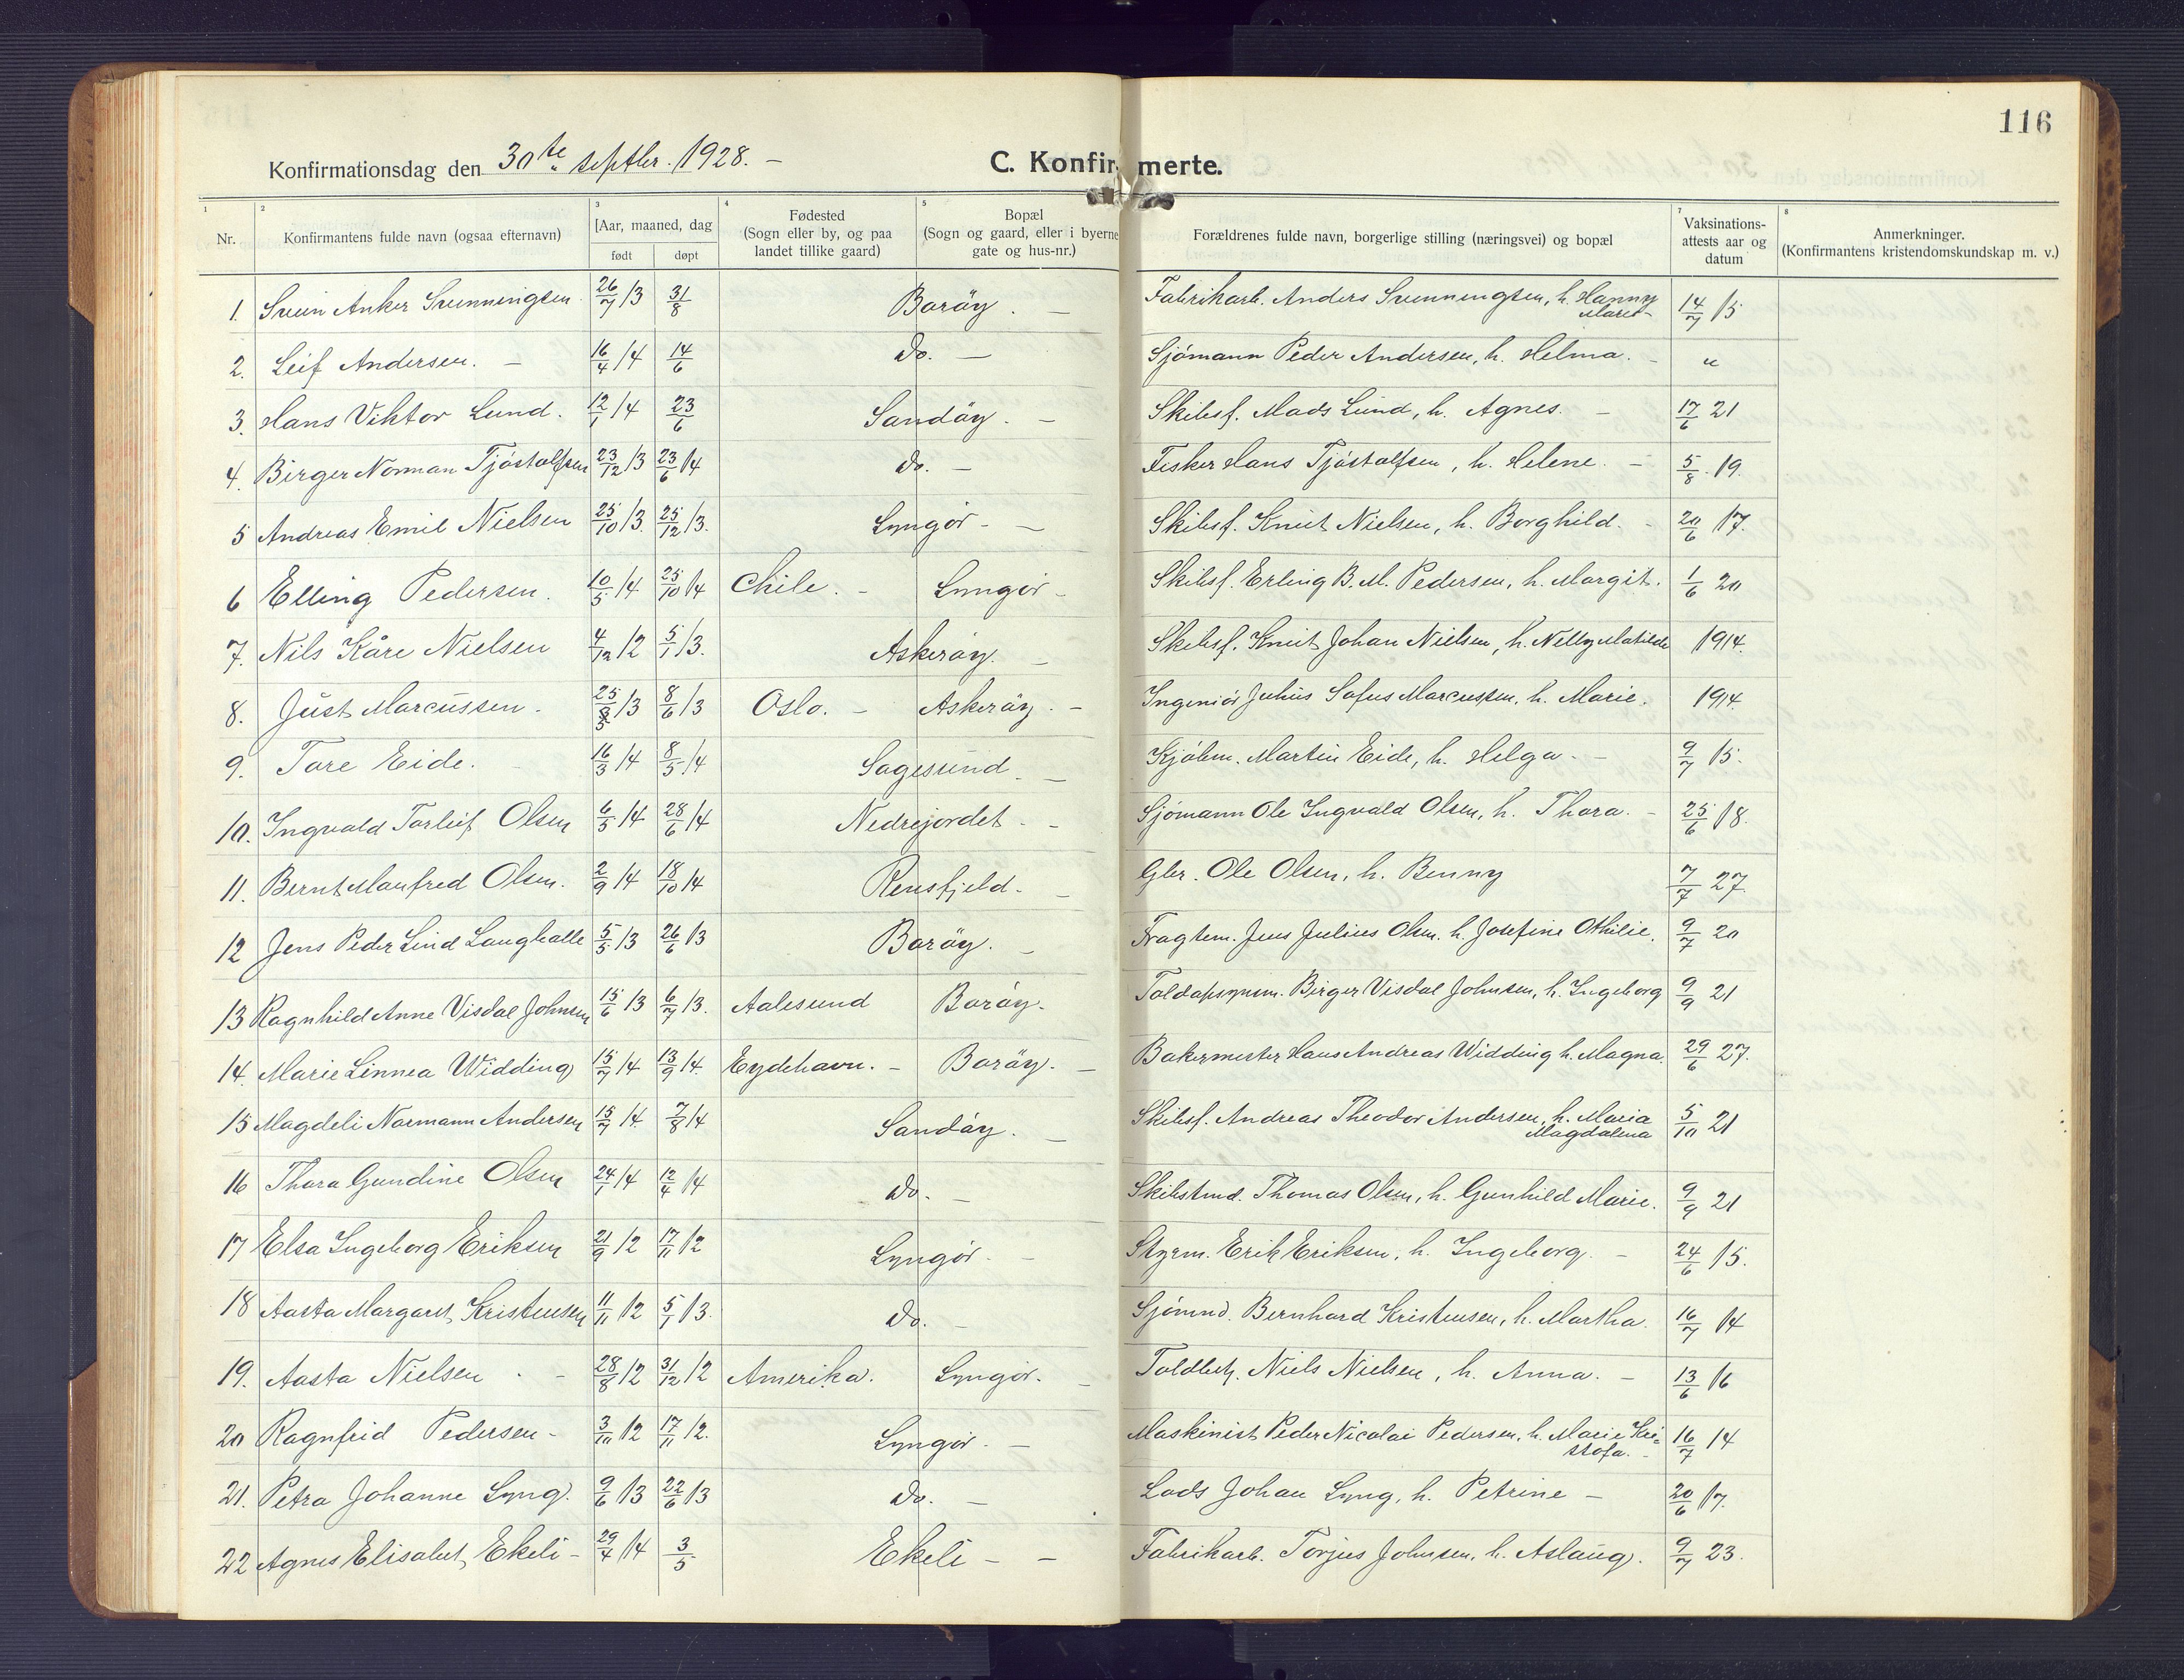 116
Konfirmationsdag den 30te septbr. 1928. -
C. Konfirmerte.
1 2 3 4 5 7 8
Nr. Konfirmantens fulde navn (ogsaa efternavn) [Aar, maaned, dag født døpt Fødested (Sogn eller by, og paa landet tillike gaard) Bopæl (Sogn og gaard, eller i byerne gate og hus-nr.) Forældrenes fulde navn, borgerlige stilling (næringsvei) og bopæl Vaksinations-attests aar og datum Anmerkninger. (Konfirmantens kristendomskundskap m. v.)
1. Svein Anker Svenningsen 26/7 13 31/8 Borøy. - Fabrikarb. Anders Svenningsen, h. Hanny Marie - 14/7 15
2. Leif Andersen. - 16/4 14 14/6 do. - Sjømann Peder Andersen, h. Helma. - "
3. Hans Viktor Lund. 12/1 14 23/6 Sandøy. - Skibsf. Mads Lund, h. Agnes. - 17/6 21
4. Birger Norman Tjøstolfsen 23/12 13 23/6 14 do. - Fisker Hans Tjøstolfsen, h. Helene. - 5/8 19.
5 Andreas Emil Nielsen 25/10 13. 25/12 13. Lyngør - - Skibsf. Knut Nielsen, h. Borghild. - 20/6 17.
6 Elling Pedersen. 10/5 14 25/10 14 Chile. - Lyngør - Skibsf. Erling B. M. Pedersen, h. Margit. 1/6 20
7. Nils Kåre Nielsen 4/12 12 5/1 13. Askerøy. - Skibsf. Knut Johan Nielsen, h. Nelly Matilde 1914.
8. Just Marcussen. 25/5 13 8/6 13 Oslo. - Askerøy. - Ingeniør Julius Sofus Marcussen, h. Marie. 1914.
9. Tore Eide. 16/3 14 8/5 14 Sagesund. - Kjøbm. Martin Eide, h. Helga. - 9/7 15.
10. Ingvald Torleif Olsen 6/5 14 28/6 14 Nedrejordet. - Sjømann Ole Ingvald Olsen, h. Thora. - 25/6 18.
11. Bernt Manfred Olsen. 2/9 14 18/10 14 Rensfjeld. - Gbr. Ole Olsen, h. Benny 7/7 27.
12 Jens Peder Lind Langballe 5/5 13 26/6 13 Borøy. - Fragtem. Jens Julius Olsen. h. Josefine Othilie. 9/7 20
13 Ragnhild Anne Visdal Johnsen 15/6 13 6/7 13. Aalesund Borøy. Toldopsynsm. Birger Visdal Johnsen, h. Ingeborg 9/9 21
14. Marie Linnea Widding 15/7 14 13/9 14. Eydehavn. - Borøy. - Bakermester Hans Andreas Widding h. Magna. 29/6 27.
15 Magdeli Normann Andersen 15/7 14. 7/8 14 Sandøy. - Skibsf. Andreas Theodor Andersen, h. Maria Magdalena 5/10 21
16 Thora Gundine Olsen 24/1 14 12/4 14 do. - Skibstmd. Thomas Olsen, h. Gunhild Marie. 9/9 21
17 Elsa Ingeborg Eriksen 21/9 12 17/11 12 Lyngør. - Styrm. Erik Eriksen, h. Ingeborg. - 24/6 15.
18 Aasta Margaret Kristensen 11/11 12 5/1 13. do. - Sjømnd. Bernhard Kristensen, h. Martha. 16/7 14
19. Aasta Nielsen. - 28/8 12 31/12 12 Amerika. Lyngør. - Toldbetj. Niels Nielsen, h. Anna. - 13/6 16
20 Ragnfrid Pedersen - 3/10 12 17/11 12. Lyngør. - Maskinist Peder Nicolai Pedersen, h. Marie Kri= stofa. - 16/7 14
21. Petra Johanne Lyng. 9/6 13 22/6 13 do. - Lods Johan Lyng, h. Petrine - 20/6 17.
22 Agnes Elisabet Ekeli - 29/4 14 3/5 Ekeli - - Fabrikarb. Torjus Johnsen, h. Aslaug. 9/7 23.